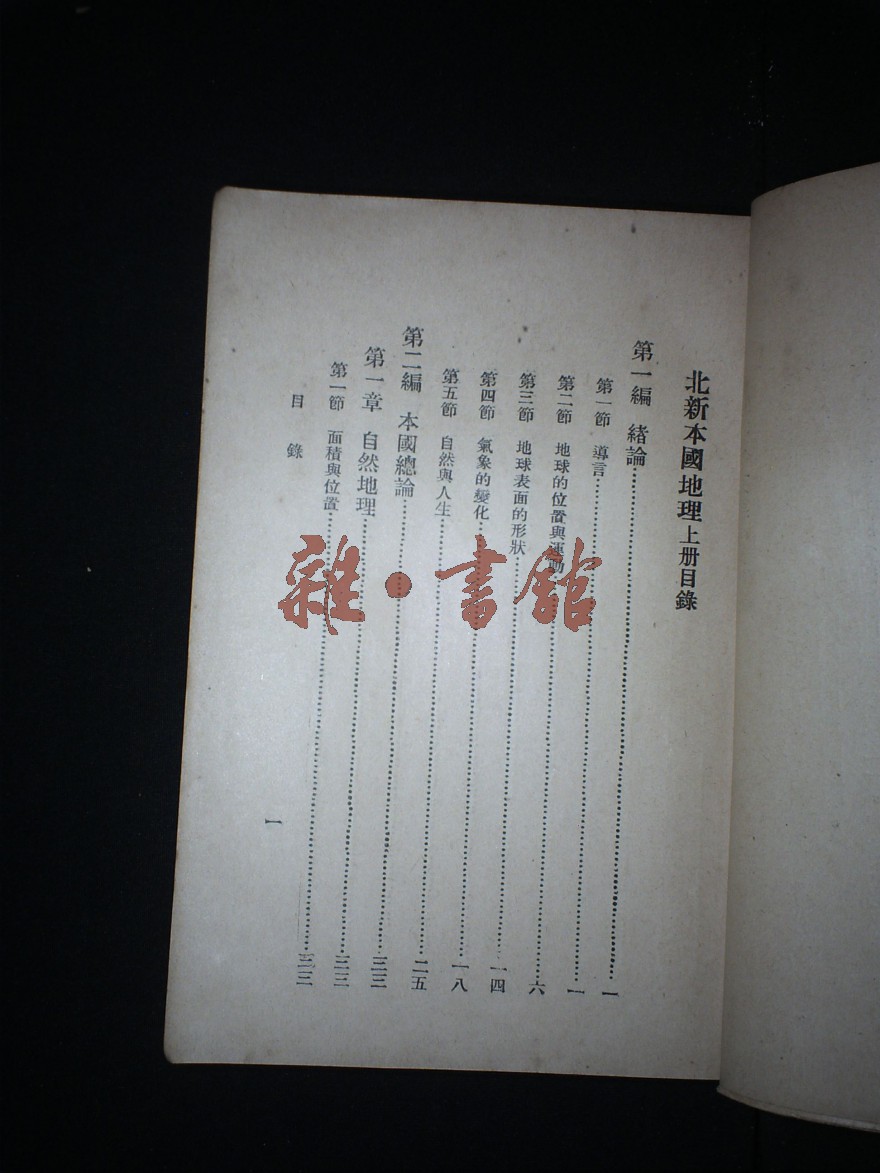 北新本國地理上册目錄
第一編 緒論……一
第一節 導言……一
第二節 地球的位置與運動……六
第三節 地球表面的形狀……一四
第四節 氣象的變化……一八
第五節 自然與人生……二五
第二編 本國總論……三三
第一章 自然地理……三三
第一節 面積與位置……三三
目錄 一
雜·書館